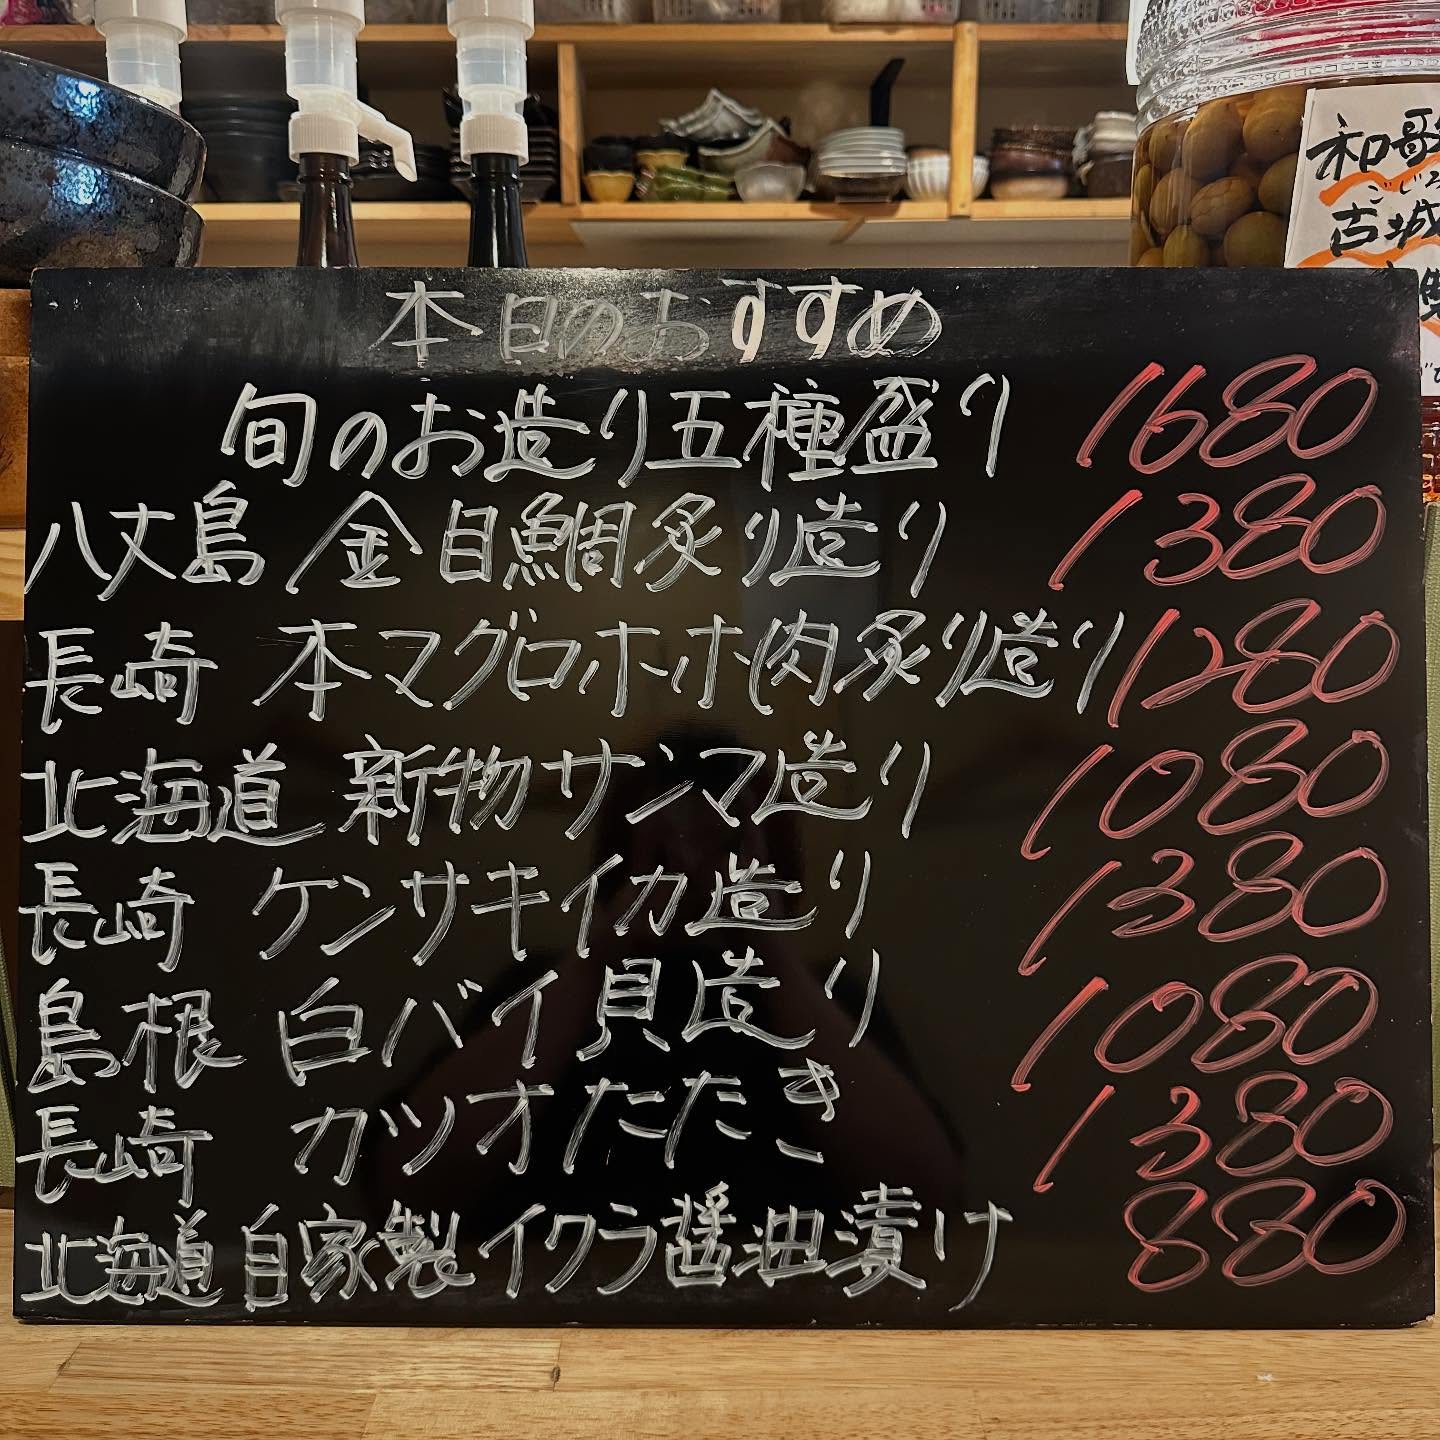 和歌
ごじろ
古城
本日のおすすめ
旬のお造り五種盛り 1680
八丈島 金目鯛炙り造り 1380
長崎 本マグロホホ肉炙り造り 1280
北海道 新物サンマ造り 1080
長崎 ケンサキイカ造り 1380
島根 白バイ貝造り 1080
長崎 カツオたたき 1380
北海道 自家製イクラ醤油漬け 880